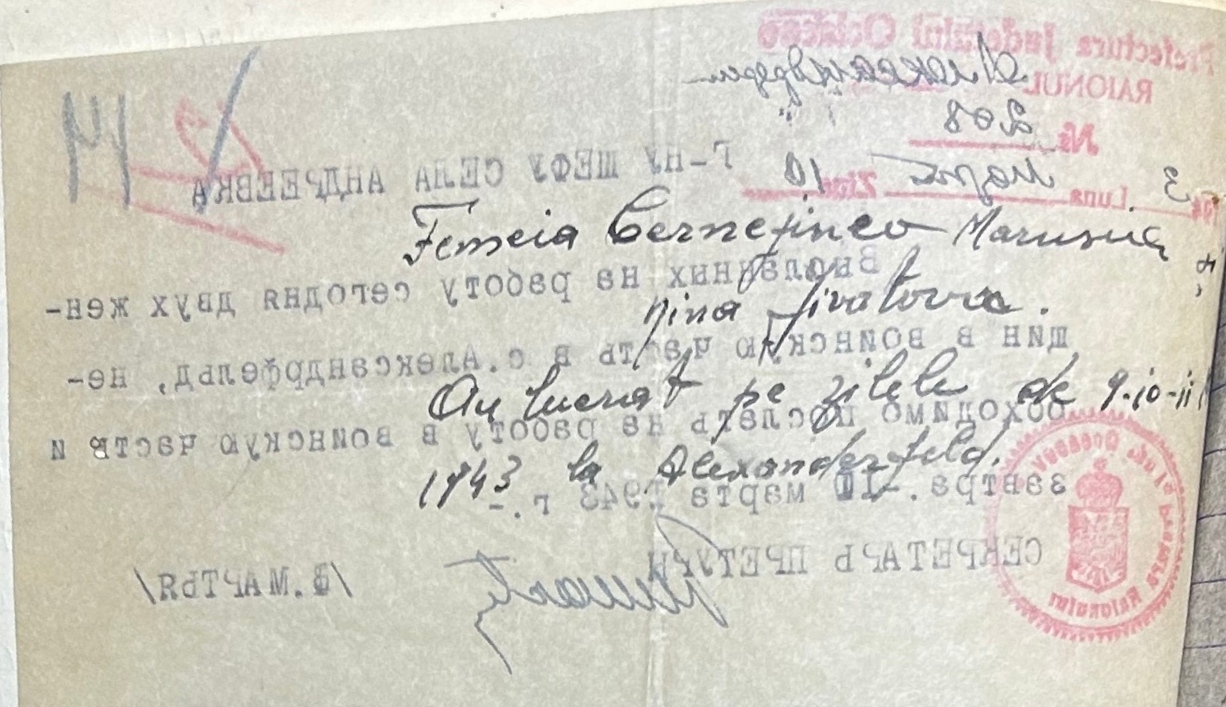 Prefectura Județului Oceacov
RAIONUL
№ 208
3 Luna Март Ziua 10
Г-НУ ШЕФУ СЕЛА АНДРЕЕВКА
Femeia Cernejinco Marusia
Высланных на работу сегодня двух жен-
nina Jivatova.
щин в воинскую часть в с.Александрфельд, не-
Au lucrat pe zilele de 9-10-11
обходимо послать на работу в воинскую часть и
1943 la Alexanderfeld.
завтра.-II марта 1943 г.-
СЕКРЕТАРЬ ПРЕТУРЫ